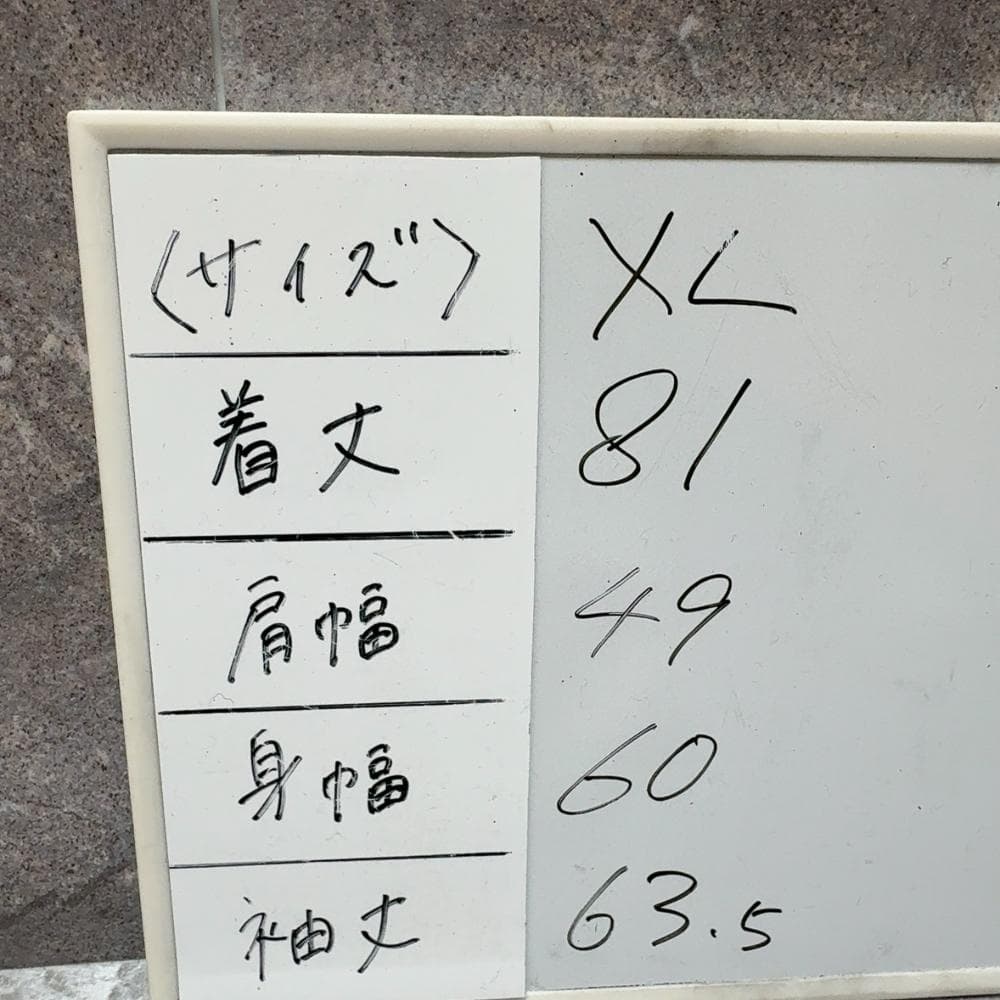 〈サイズ〉 XL
着丈 81
肩幅 49
身幅 60
袖丈 63.5